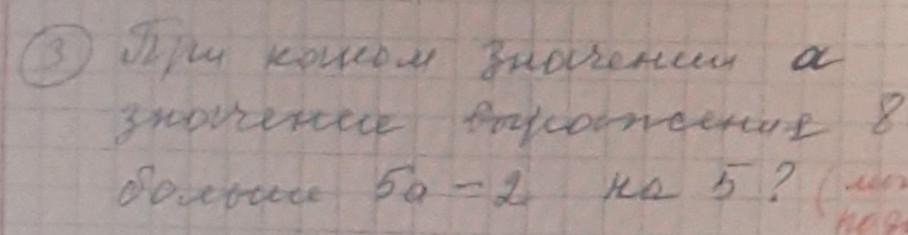 ③ При каком значении а
значение выражения 8
больше 5а - 2 на 5? (